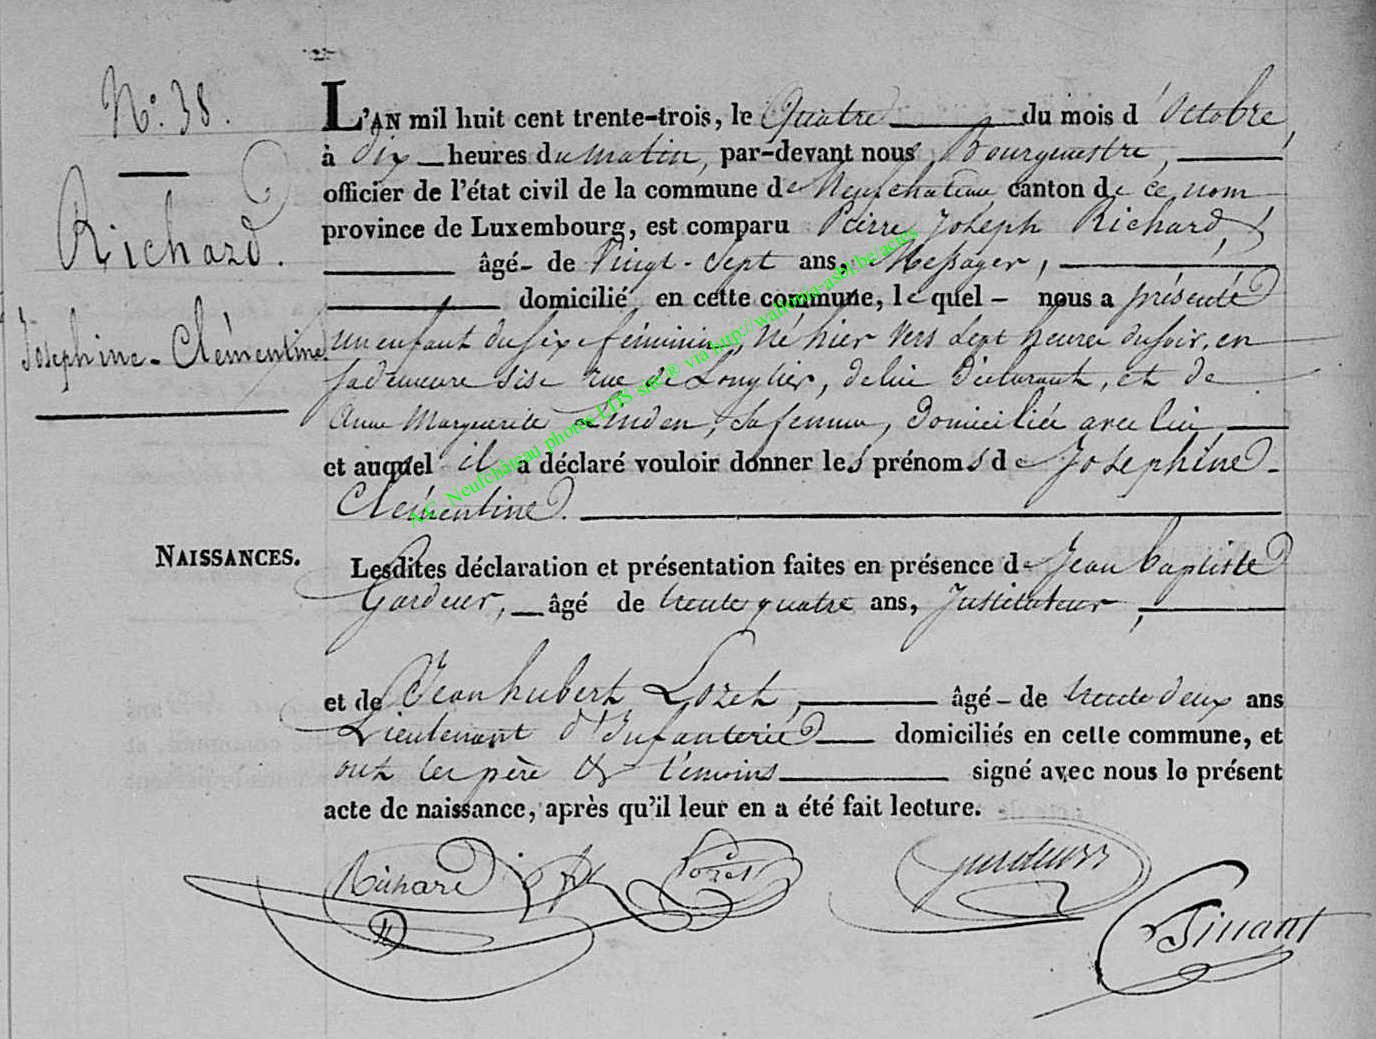 N.° 38.
Richard.
Joséphine-Clémentine.
NAISSANCES.
L'AN mil huit cent trente-trois, le Quatre du mois d'Octobre,
à dix heures du matin, par-devant nous Bourgmestre,
officier de l'état civil de la commune de Neufchateau canton de ce nom,
province de Luxembourg, est comparu Pierre Joseph Richard,
âgé de vingt-sept ans, Messager,
domicilié en cette commune, lequel nous a présenté
un enfant du sexe féminin, né hier vers sept heures du soir, en
sa demeure sise rue de Longlier, de lui déclarant, et de
Anne Marguerite Linden, sa femme, domiciliée avec lui,
et auquel il a déclaré vouloir donner les prénoms de Joséphine-
Clémentine.
Lesdites déclaration et présentation faites en présence de Jean baptiste
Gardeur, âgé de trente quatre ans, Instituteur,
et de Jean hubert Lozet, âgé de trente deux ans
Lieutenant d'Infanterie domiciliés en cette commune, et
ont les père & témoins signé avec nous le présent
acte de naissance, après qu'il leur en a été fait lecture.
Richard
Lozet
Gardeur
Tinant
A.C. Neufchâteau photos LDS site® via http://wallonia-asbl.be/actes